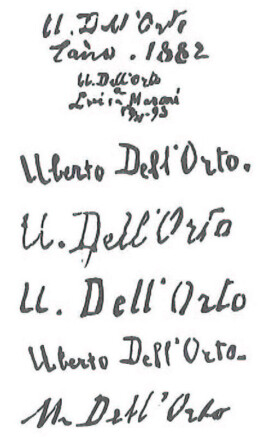 U. Dell'Orto
Cairo. 1882
U. Dell'Orto
a
Luisa Marani
93
Uberto Dell'Orto.
U. Dell'Orto
U. Dell'Orto
Uberto Dell'Orto.
U. Dell'Orto